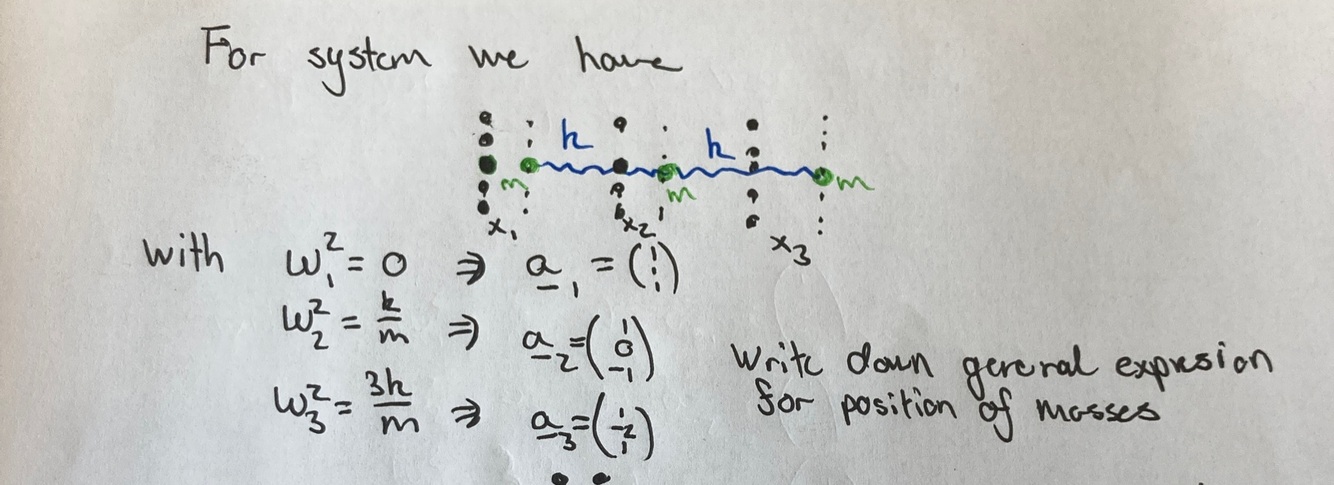 For system we have
k k
m m m
x₁ x₂ x₃
with ω₁² = 0 ⇒ a₁ = (1 1 1)
ω₂² = k/m ⇒ a₂ = (1 0 -1)
ω₃² = 3k/m ⇒ a₃ = (1 -2 1)
Write down general expresion
for position of masses